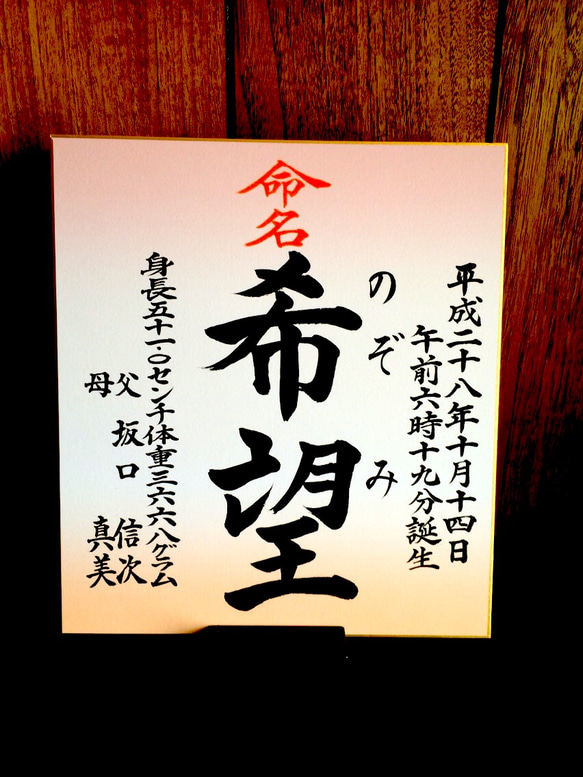 命名
平成二十八年十月十四日
午前六時十九分誕生
のぞみ
希望
身長五十一・〇センチ体重三六六八グラム
父 坂口 信次
母 真美